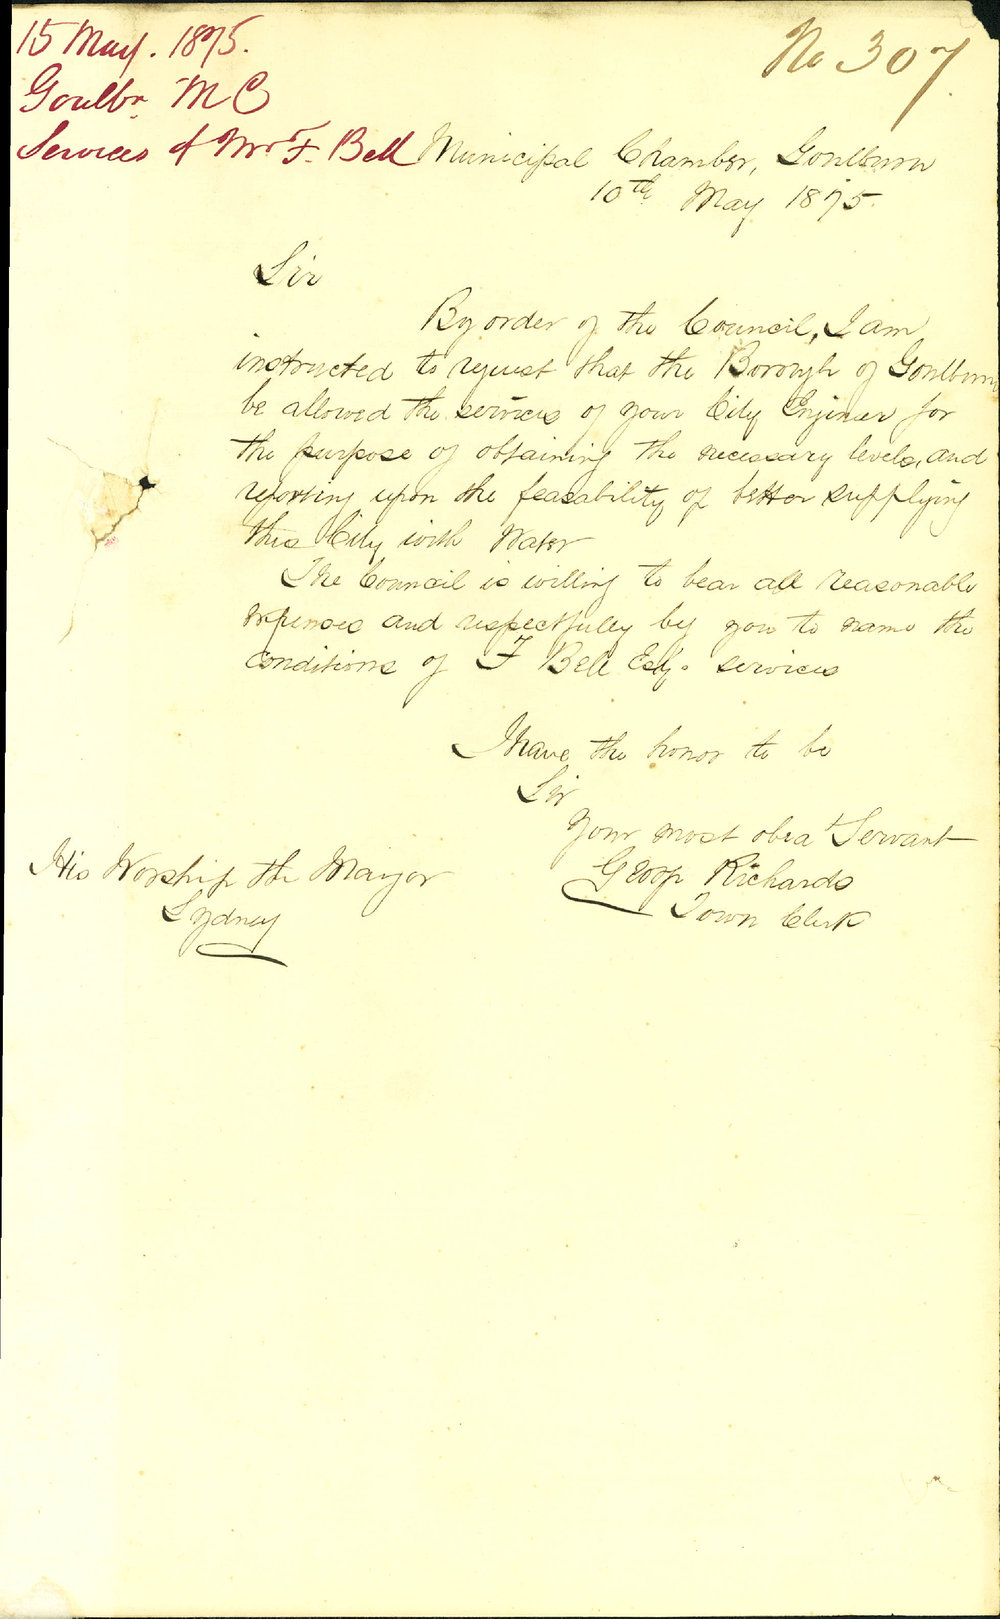 15 May. 1875.
Goulbn MC
Services of Mr F. Bell
No 307
Municipal Chamber, Goulburn
10th May 1875.
Sir
By order of the Council, I am
instructed to request that the Borough of Goulburn
be allowed the services of your City Engineer for
the purpose of obtaining the necessary levels, and
reporting upon the feasability of better supplying
this City with Water
The Council is willing to bear all reasonable
expenses and respectfully by you to name the
conditions of F Bell Esq. services
I have the honor to be
Sir
Your most obedt Servant
Richards
Town Clerk
His Worship the Mayor
Sydney